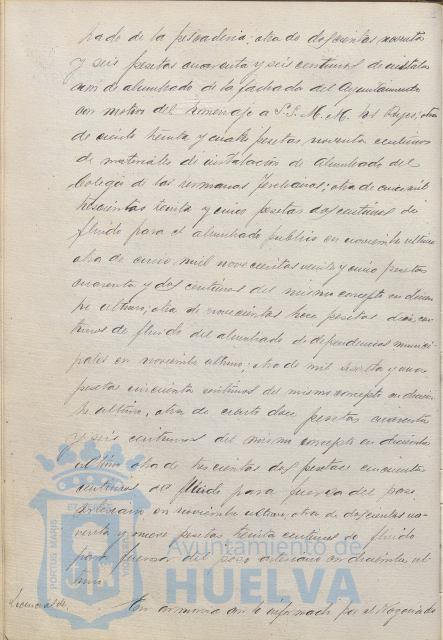 hado de la pescaderia; otra de doscientas noventa
y seis pesetas cuarenta y seis centimos de instala
cion de alumbrado de la fachada del Ayuntamiento
con motivo del homenaje a S.S. M.M. los Reyes; otra
de ciento treinta y cuatro pesetas noventa centimos
de materiales de instalacion de alumbrado del
Colegio de las hermanas Teresianas; otra de cuatro mil
trescientas treinta y cinco pesetas dos centimos de
fluido para el alumbrado publico en noviembre ultimo
otra de cinco mil novecientas veinte y cinco pesetas
cuarenta y dos centimos del mismo concepto en diciem
bre ultimo; otra de novecientas doce pesetas diez cen
timos de fluido del alumbrado de dependencias munici
pales en noviembre ultimo; otra de mil sesenta y nueve
pesetas cincuenta centimos del mismo concepto en diciem
bre ultimo, otra de ciento doce pesetas cuarenta
y seis centimos del mismo concepto en diciembre
ultimo otra de trescientas dos pesetas cincuenta
centimos de fluido para fuerza del pozo
artesiano en noviembre ultimo, otra de doscientas no
venta y nueve pesetas treinta centimos de fluido
para fuerza del pozo artesiano en diciembre ul
timo
En armonia con lo informado por el Negociado
Ayuntamiento de
HUELVA
PORTUS MARIS